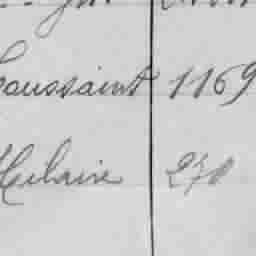 Toussaint 1169
Hilaire 270